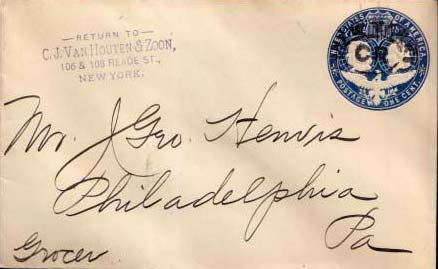 RETURN TO
C. J. VAN HOUTEN & ZOON,
106 & 108 READE ST.,
NEW YORK.
UNITED STATES OF AMERICA
POSTAGE ONE CENT
Mr. J Geo. Henvis
Philadelphia
Pa
Grocer